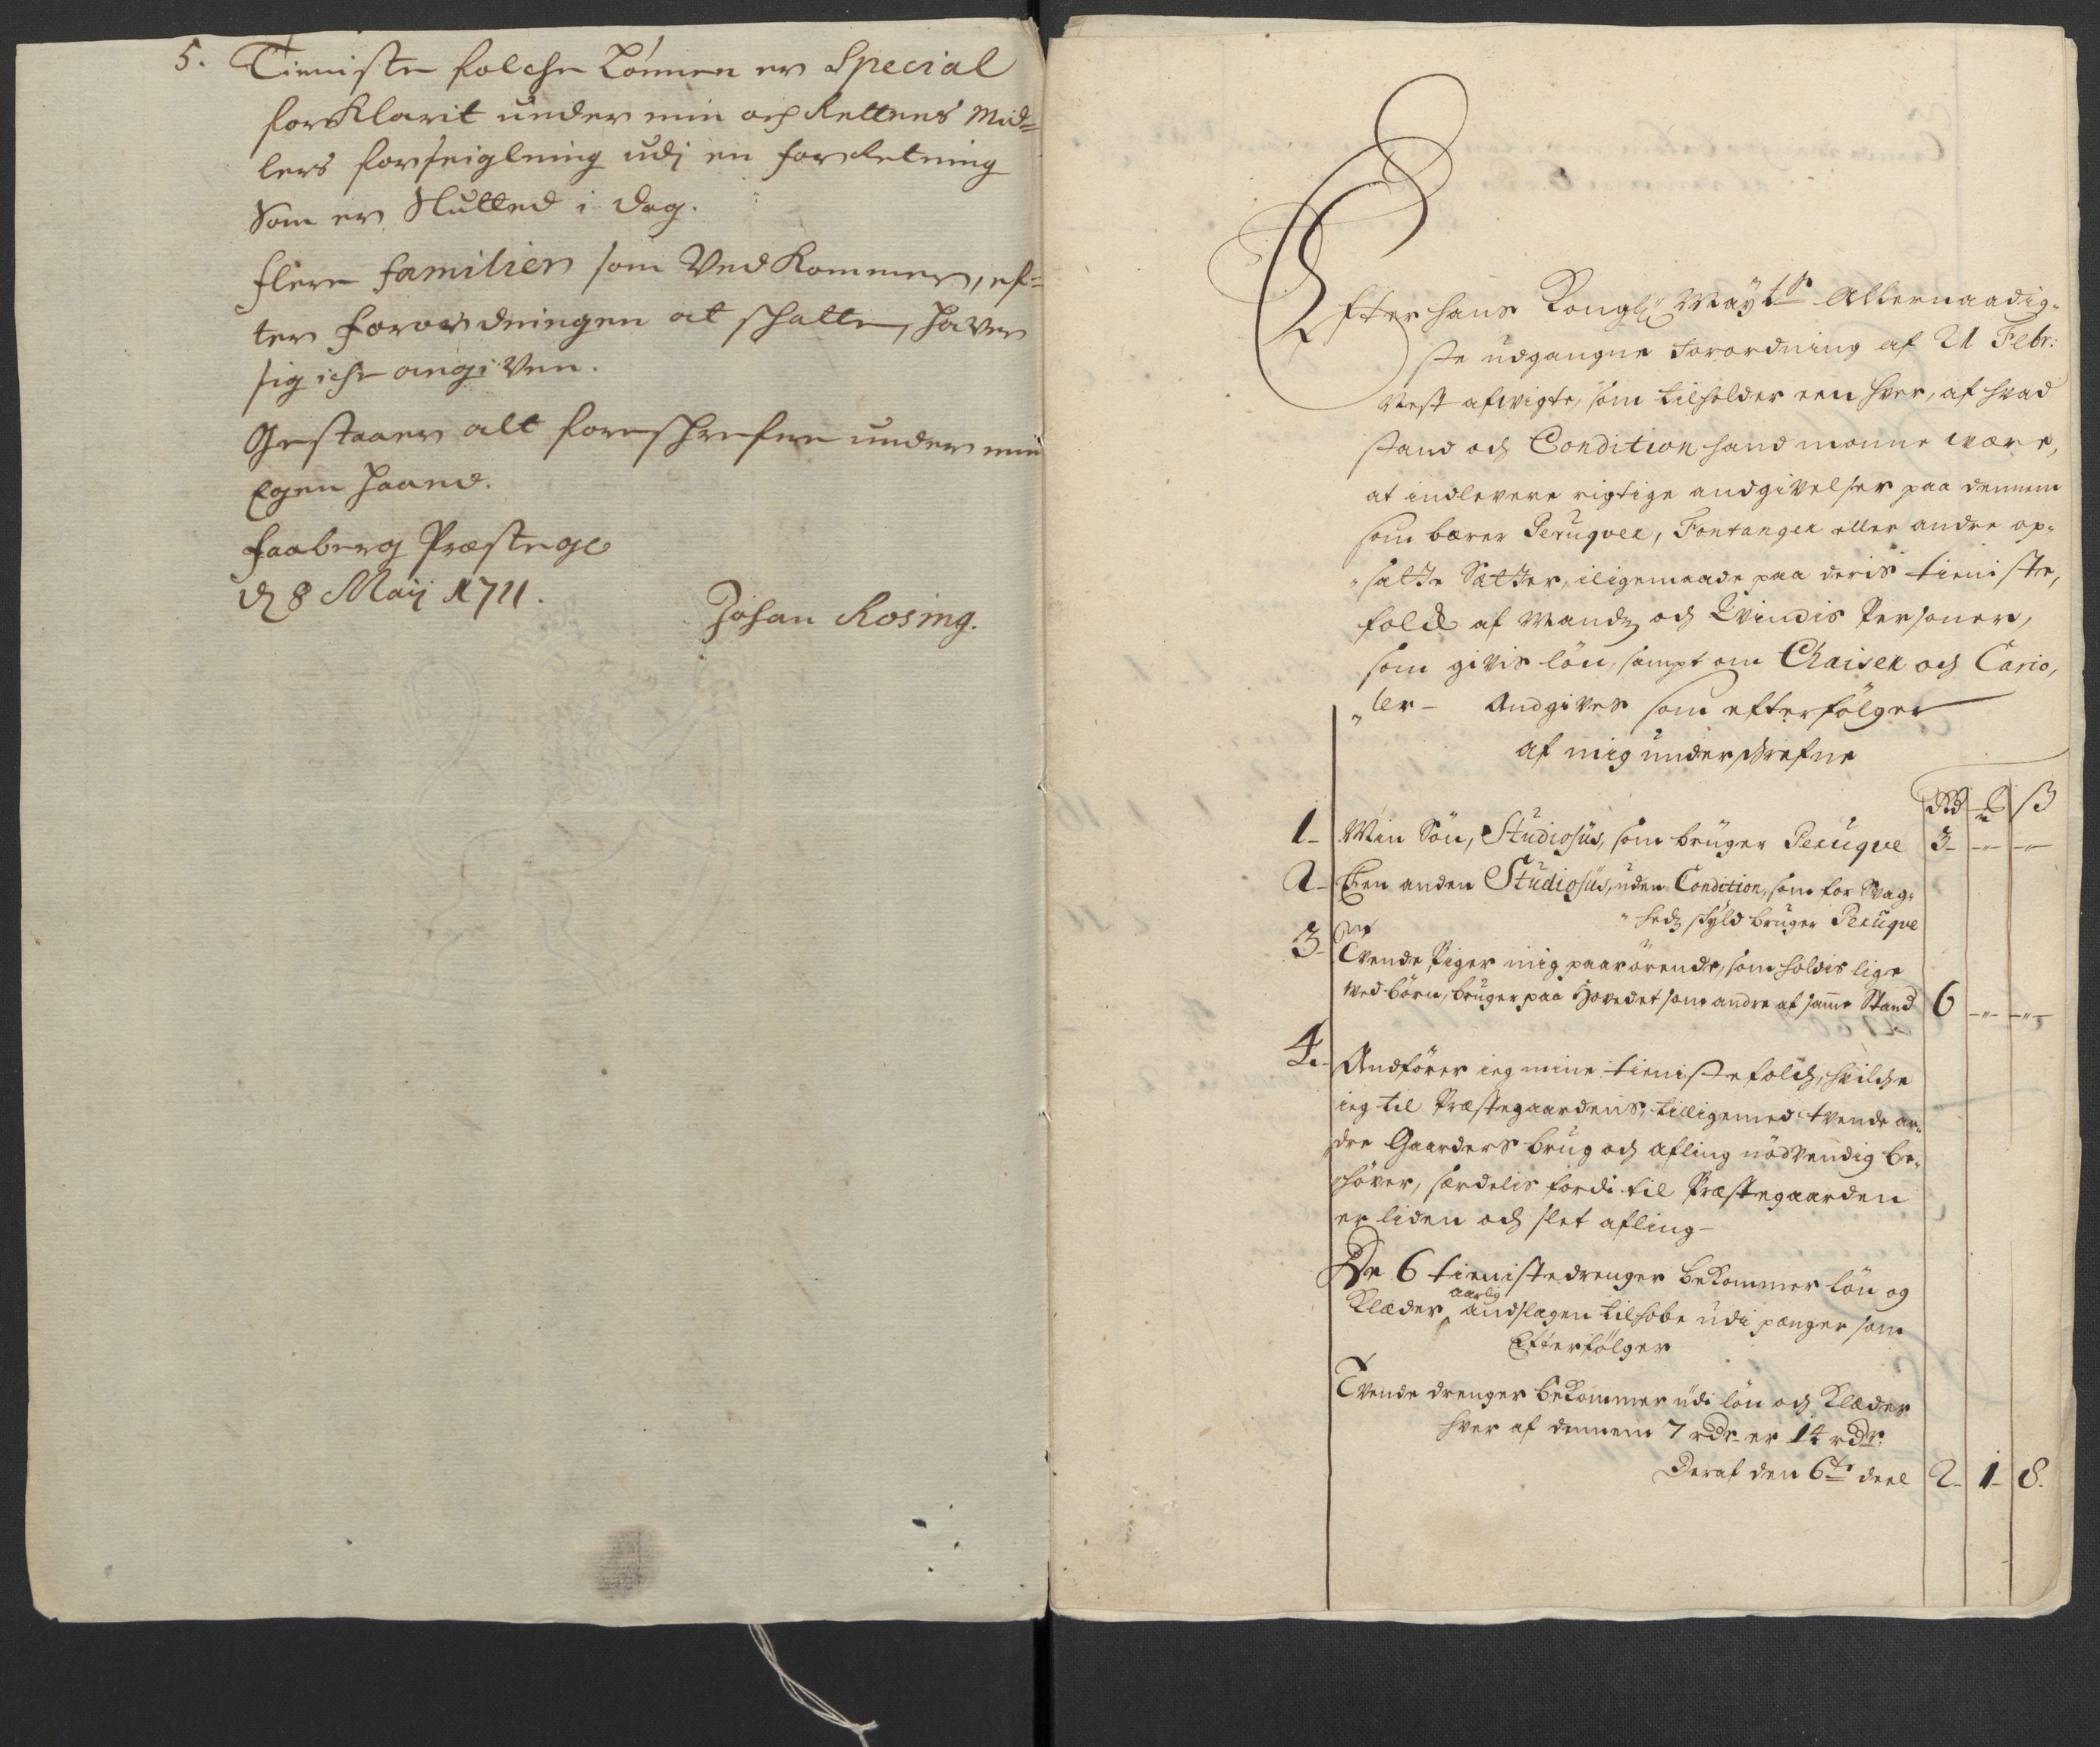 5. Tieniste folche Lönnen er Special
forKlarit under min och Rettens Mid=
lers forseigling udj en forRetning
Som er Slutted i Dag.
flere familier som VedKommer, ef=
ter forordningen at schatte, haver
sig iche angiven.
Gestaaer alt foreschrefne under min
Egen haand.
faaberg Præstege
d 8 Maij 1711.
Johan Rosing.
Efter hans Kongl: Mayts Allernaadig-
ste udgangne Forordning af 21 Febr:
Nest afvigte, som tilholder een hver, af hvad
stand och Condition hand monne være,
at indlevere rigtige andgivelser paa dennem
som bærer Peruqver, Fontanger eller andre op-
"satte Sætter, iligemaade paa deris tieniste,
folck af Mandz och Qvindis Personer,
som givis lön, sampt om Chaiser och Cario,
"ler - Andgives som efterfölger
af mig underskrefne
Rd ß
1- Min Sön, Studiosus, som bruger Peruqve 3- -"- -"-
2- Een anden Studiosus, uden Condition, som for Svag-
"hedz skyld bruger Peruqve
3- Tvende Piger mig paarörende, som holdis lige
ved börn, bruger paa Hovedet som andre af samme Stand 6 -"- -"-
4- Andförer ieg mine tienistefolch, hvilche
ieg til Præstegaardens, tilligemed tvende an-
"dre Gaarders brug och afling nödvendig be-
"höver, særdelis fordi til Præstegaarden
er liden och slet afling-
De 6 tienistedrenger beKommer lön og
Klæder aarlig andslagen tilhobe udi penger som
Efterfölger
Tvende drenger beKommer udi lön och Klæder
hver af dennem 7 rdr er 14 rdr:
Deraf den 6te deel 2- 1- 8.